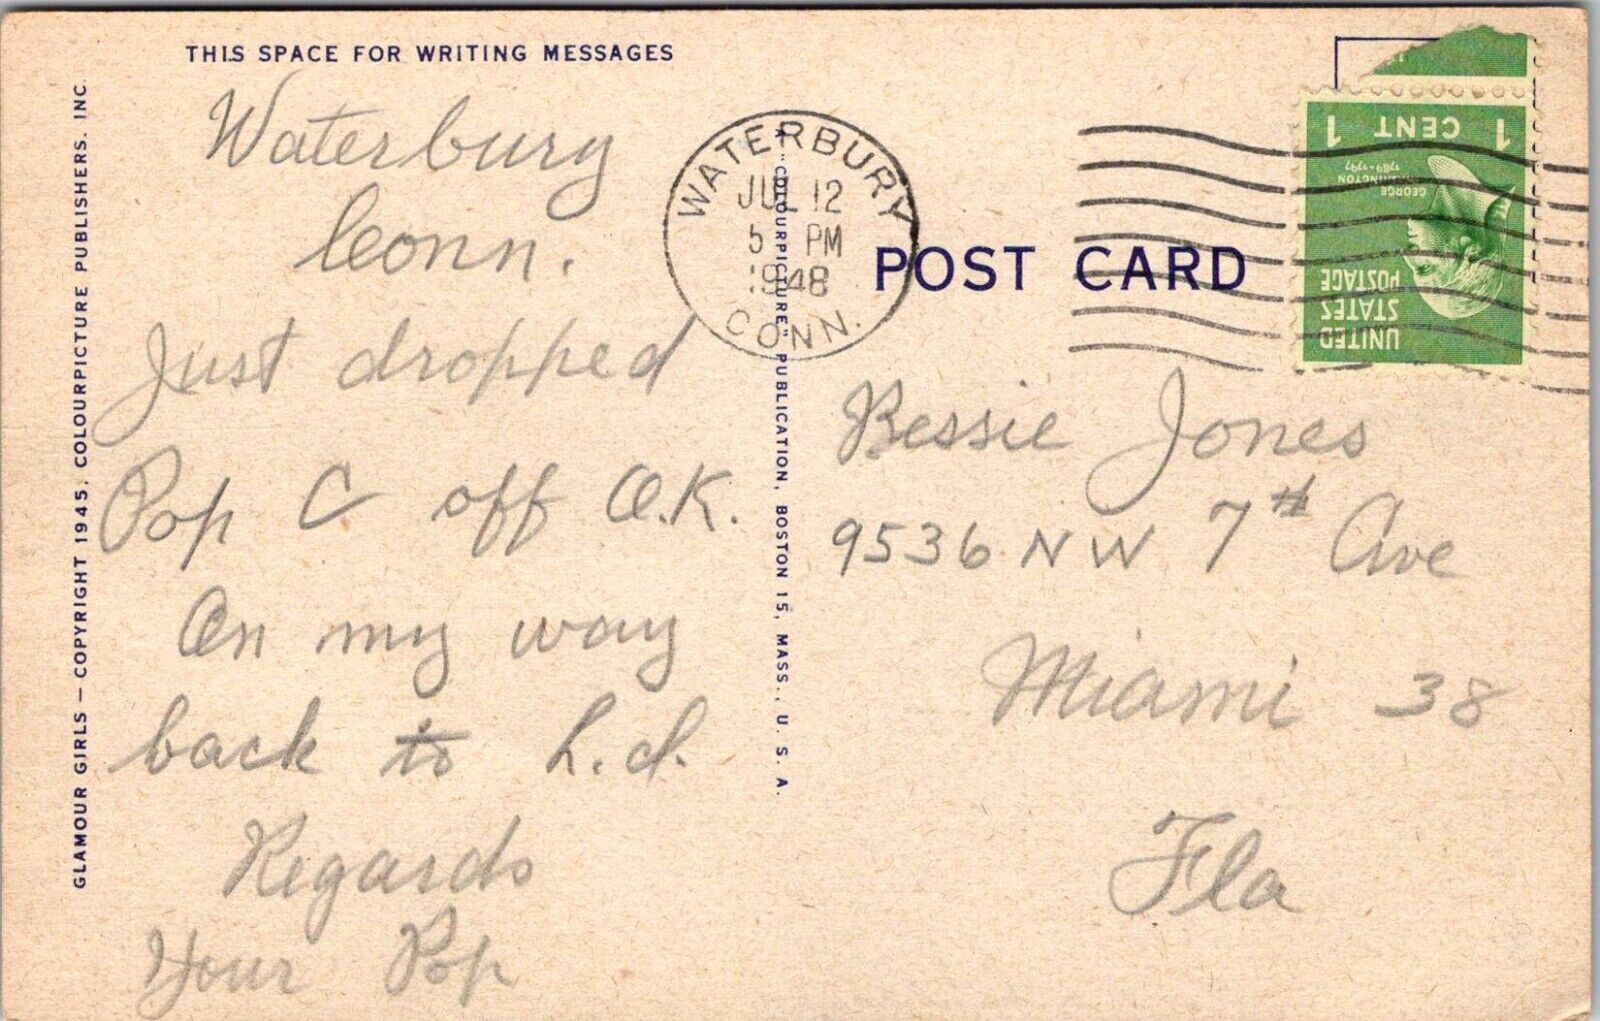 THIS SPACE FOR WRITING MESSAGES
Waterbury
Conn.
Just dropped
Pop C off O.K.
On my way
back to L.I.
Regards
Your Pop
GLAMOUR GIRLS — COPYRIGHT 1945, COLOURPICTURE PUBLISHERS, INC.
A "COLOURPICTURE" PUBLICATION, BOSTON 15, MASS., U. S. A.
WATERBURY
JUL 12
5 PM
1948
CONN.
POST CARD
1 CENT 1
GEORGE
WASHINGTON
1789-1797
UNITED
STATES
POSTAGE
Bessie Jones
9536 NW 7th Ave
Miami 38
Fla